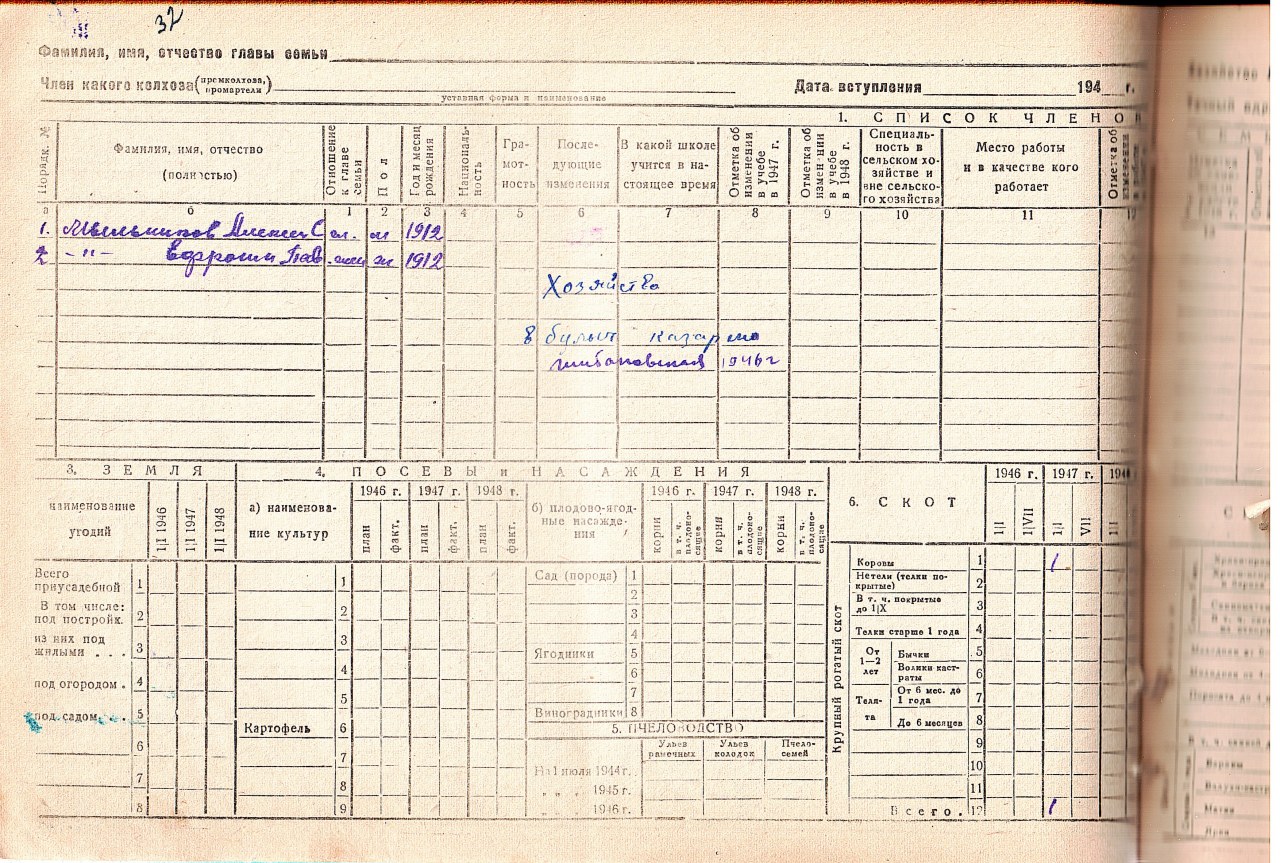 37
Фамилия, имя, отчество главы семьи
Член какого колхоза (промколхоза, промартели)
уставная форма и наименование
Дата вступления 194 г.
1. СПИСОК ЧЛЕНО
Порядк. №
Фамилия, имя, отчество (полностью)
Отношение к главе семьи
Пол
Год и месяц рождения
Националь-ность
Гра-мот-ность
После-дующие изменения
В какой школе учится в на-стоящее время
Отметка об изменении в учебе в 1947 г.
Отметка об измен-нии в учебе в 1948 г.
Специаль-ность в сельском хо-зяйстве и вне сельско-го хозяйства
Место работы и в качестве кого работает
Отметка об
а б 1 2 3 4 5 6 7 8 9 10 11 12
1. Мельников Алексей С гл. м 1912
2. -"- Ефросин Пав жен ж 1912
Хозяйства
8 казарма
1946 г
3. ЗЕМЛЯ
наименование угодий
1|I 1946
1|I 1947
1|I 1948
Всего приусадебной 1
В том числе: под постройк. 2
из них под жилыми . . . 3
под огородом . 4
под садом . . . 5
6
7
8
4. ПОСЕВЫ и НАСАЖДЕНИЯ
а) наименова-ние культур
1946 г. 1947 г. 1948 г.
план факт. план факт. план факт.
1
2
3
4
5
Картофель 6
7
8
9
б) плодово-ягод-ные насажде-ния
1946 г. 1947 г. 1948 г.
корни в т. ч. плодоно-сящие корни в т. ч. плодоно-сящие корни в т. ч. плодоно-сящие
Сад (порода) 1
2
3
4
Ягодники 5
6
7
Виноградники 8
5. ПЧЕЛОВОДСТВО
Ульев рамочных
Ульев колодок
Пчело-семей
На 1 июля 1944 г.
„ „ „ 1945 г.
„ „ „ 1946 г.
6. СКОТ
1946 г. 1947 г. 194
1|I 1|VII 1|I VII 1|I
Крупный рогатый скот
Коровы 1 1
Нетели (телки по-крытые) 2
В т. ч. покрытые до 1|X 3
Телки старше 1 года 4
От 1—2 лет
Бычки 5
Волики каст-раты 6
Теля-та
От 6 мес. до 1 года 7
До 6 месяцев 8
9
10
11
Всего. 12 1